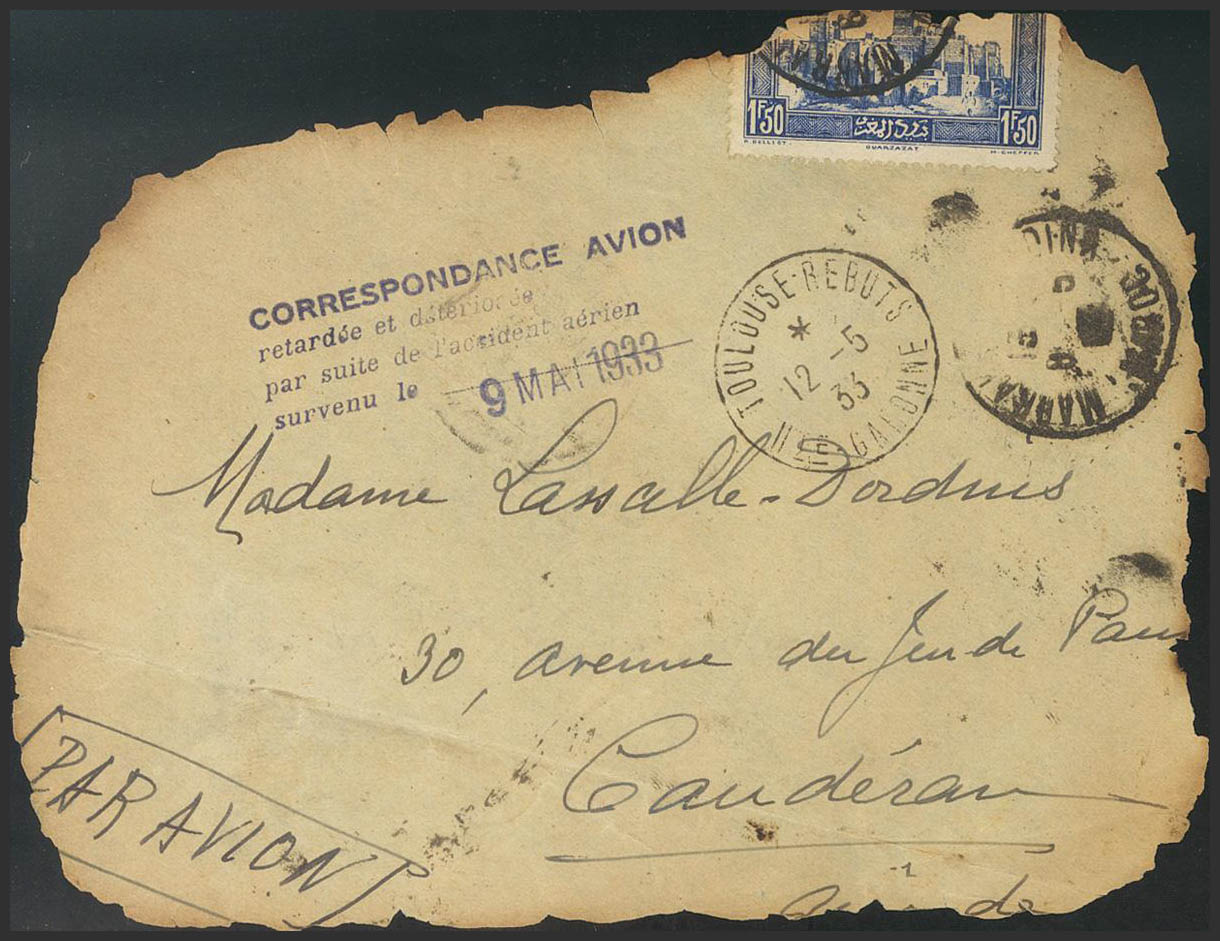 1F50 بريد المغرب 1F50
OUARZAZAT
CORRESPONDANCE AVION
retardée et détériorée
par suite de l'accident aérien
survenu le 9 MAI 1933
TOULOUSE-REBUTS
*
12 -5
33
HTE GARONNE
MAROC
Madame Lassalle-Dordins
30, avenue du Jeu de Paum
Caudéran
PAR AVION
de